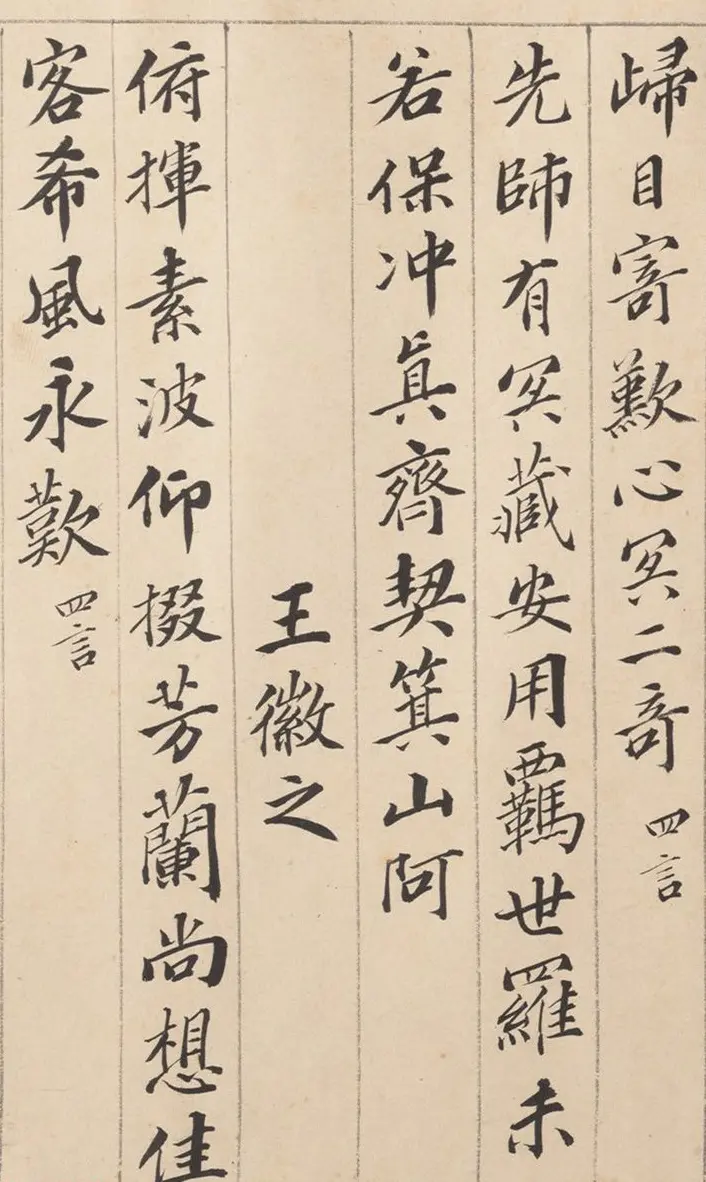 歸目寄歎心冥二奇 四言
先師有冥藏安用羈世羅未
若保冲真齊契箕山阿
王徽之
俯揮素波仰掇芳蘭尚想佳
客希風永歎 四言